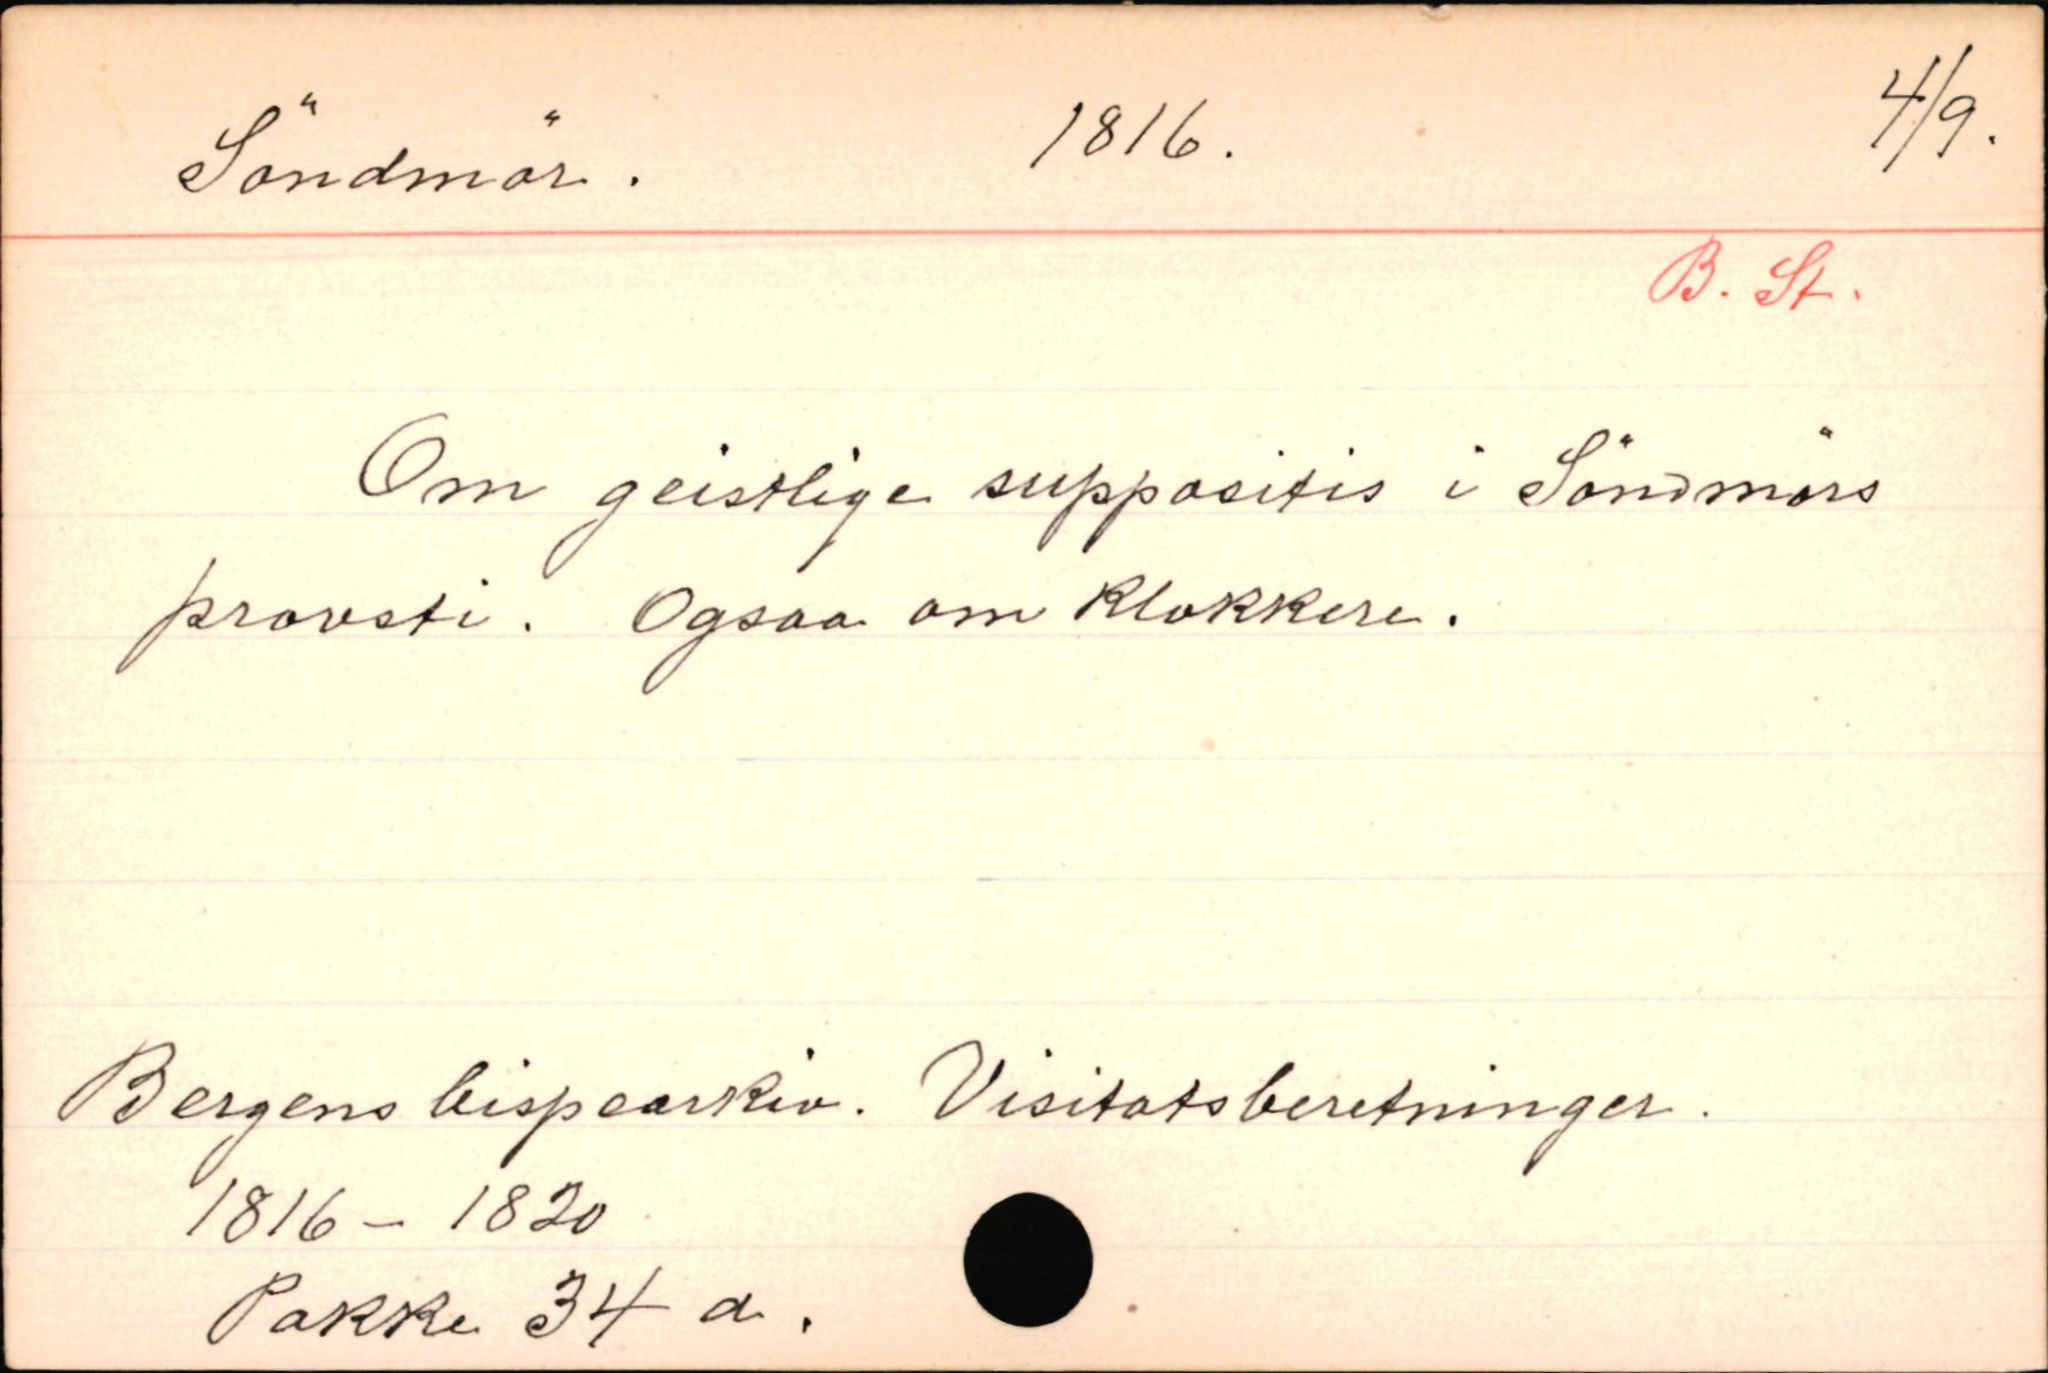 Söndmör. 1816. 4/9.
B. St.
Om geistlige suppositis i Söndmörs
provsti. Ogsaa om klokkere.
Bergens bispearkiv. Visitatsberetninger.
1816 - 1820
Pakke 34 a.